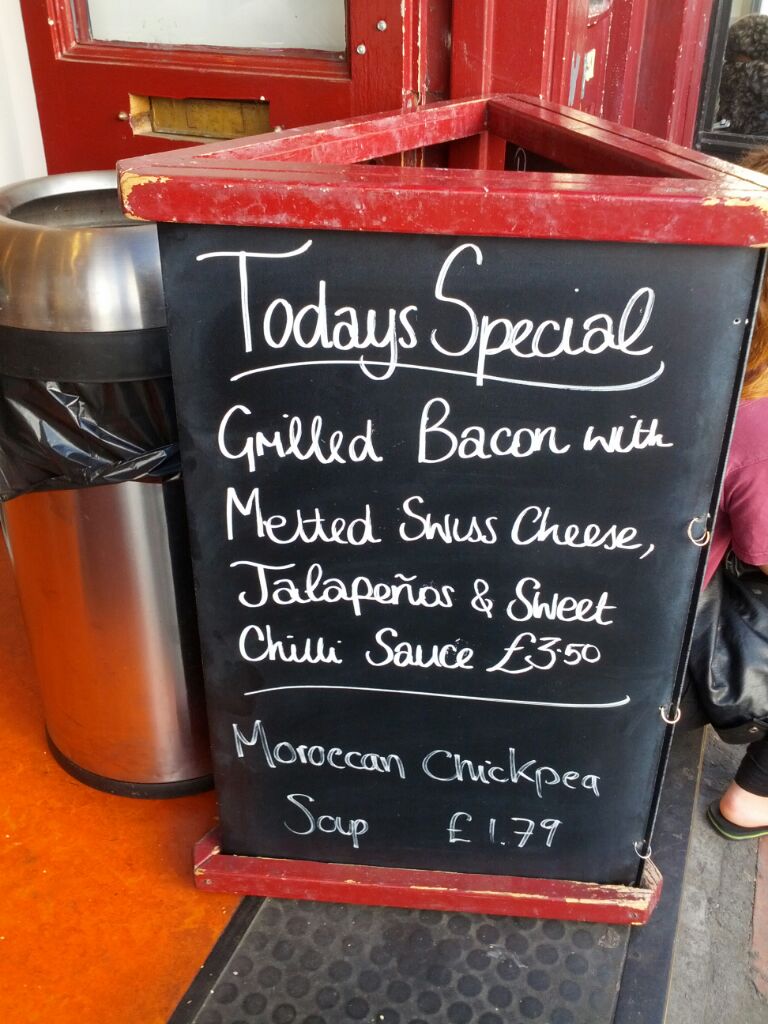 Todays Special
Grilled Bacon with
Melted Swiss Cheese,
Jalapeños & Sweet
Chilli Sauce £3.50
Moroccan Chickpea
Soup £1.79